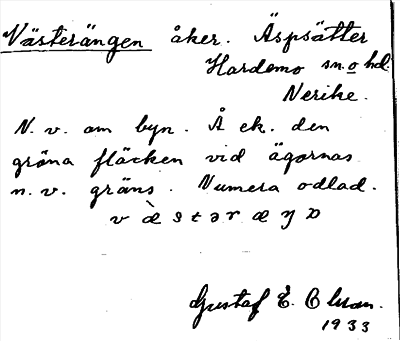 Västerängen åker. Äspsätter
Hardemo sn o hd.
Nerike.
N. v. om byn. Å ek. den
gröna fläcken vid ägornas
n. v. gräns. Numera odlad.
v æ̀ s t ə r æ ŋ
Gustaf E.
1933